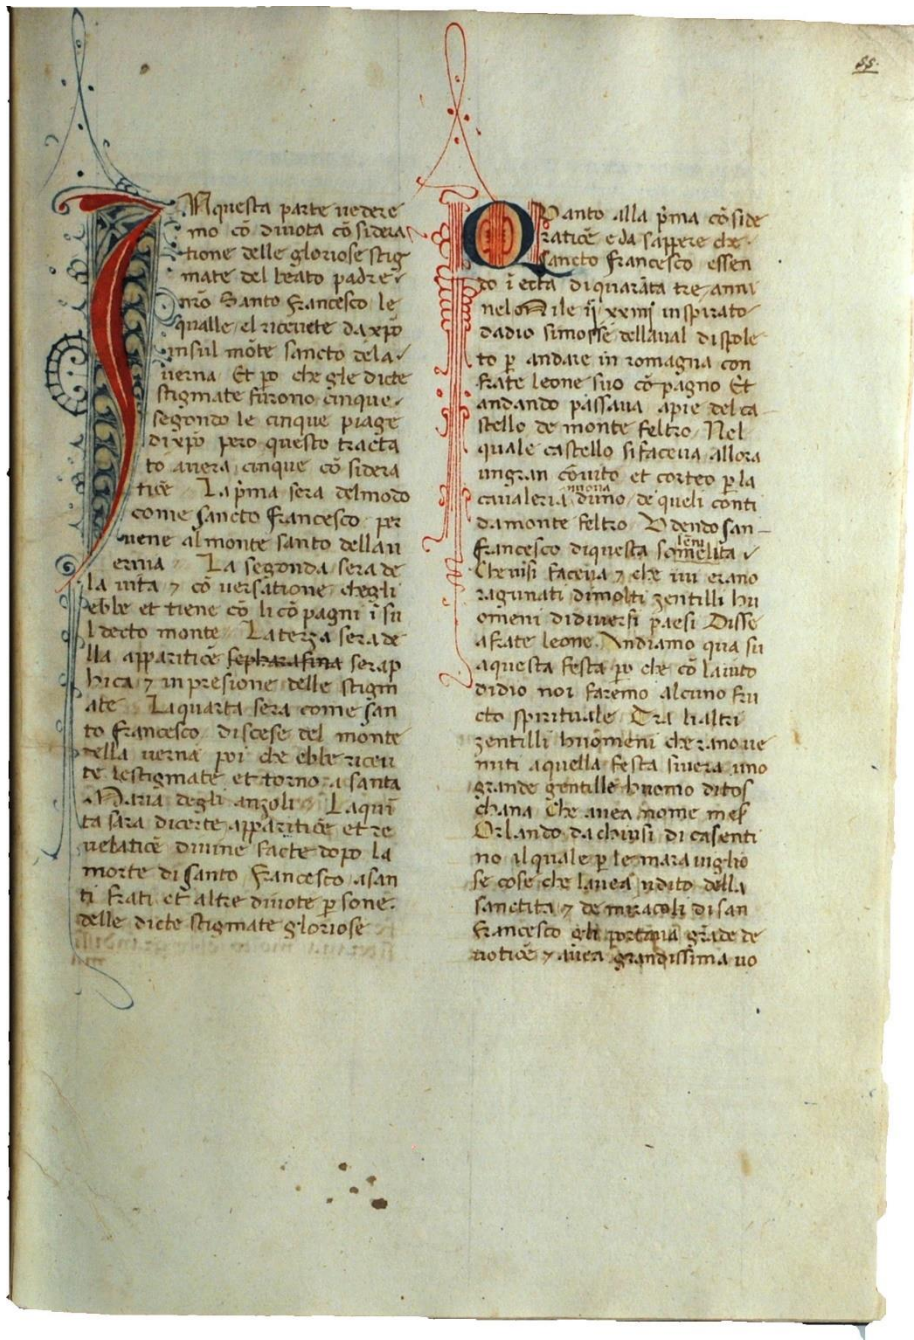 55.
IN questa parte uedere
mo cō diuota cō sidera
tione delle gloriose stig
mate del beato padre
nr̄o Santo francesco le
qualle el riceuete da xp̄o
insul mōte sancto dela
uerna Et po che gle dicte
stigmate furono cinque
segondo le cinque piage
di xp̄o pero questo tracta
to auera cinque cō sidera
tiōe La p̄ma sera del modo
come sancto francesco per
uene al monte santo dellau
erna La segonda sera de
la uita ⁊ cō uersatione chegli
ebbe et tiene cō li cō pagni ī su
l decto monte La terza sera de
lla apparitiōe sepharafina serap
hica ⁊ in presione delle stigm
ate La quarta sera come san
to francesco discese del monte
della uerna poi che ebbe riceu
te lestigmate et torno a santa
Maria degli anzoli Laquī
ta sara dicerte apparitiōe et re
uelatiōe diuine facte dopo la
morte di santo francesco asan
ti frati et altre diuote p̱ sone
delle dicte stigmate gloriose
QUanto alla p̄ma cō side
ratiōe e da sappere che
sancto francesco essen
do ī etta di quarāta tre anni
nel Mile ij xxiiij inspirato
dadio simosse dellaual dispole
to p̱ andare in romagna con
frate leone suo cō pagno Et
andando passaua apie del ca
stello de monte feltro Nel
quale castello si faceua allora
un gran cōuito et corteo p̱ la
noua
caualeria duno de queli conti
da monte feltro Vdendo san
leni
francesco di questa somelita
che uisi faceua ⁊ che iui erano
ragunati di molti zentilli hu
omeni di diuersi paesi Disse
a frate leone Andiamo qua su
a questa festa po che cō laiuto
didio noi faremo alcuno fru
cto spirituale Tra li altri
zentilli huomeni che rano ue
nuti a quella festa siuera uno
grande gentille huomo ditos
chana che auea nome mes
Orlando da chiusi di casenti
no il quale p̱ le marauiglio
se cose che lauea udito della
sanctita ⁊ de miracoli di san
francesco gli portaua grāde de
uotiōe ⁊ auea grandissima uo